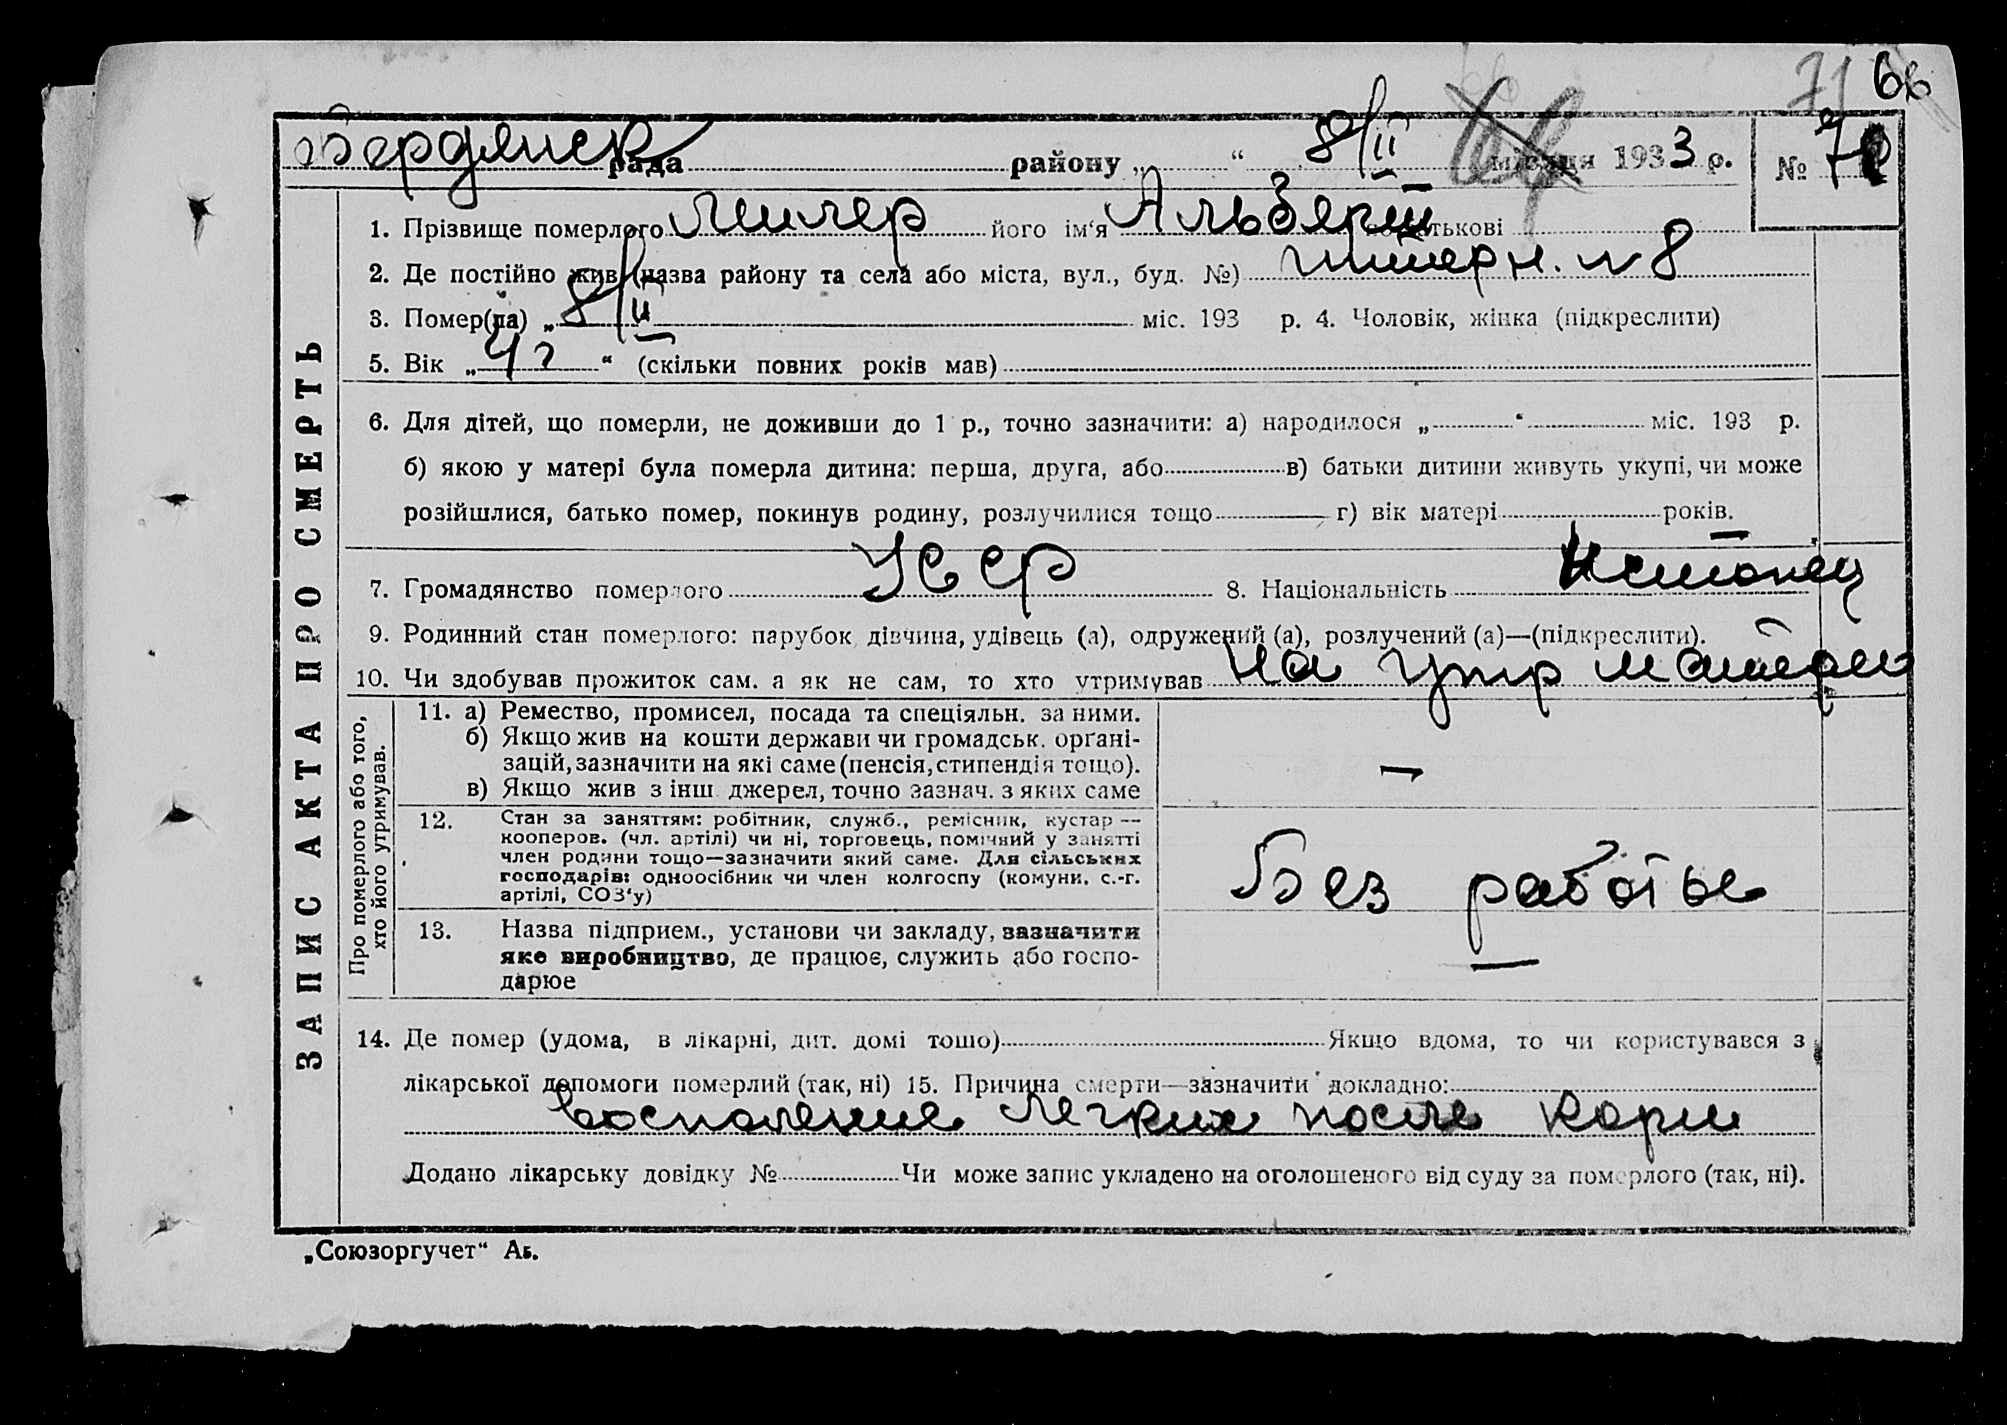 71 66
Бердянск рада району „ “ 8/II місяця 1933 р. № 70
ЗАПИС АКТА ПРО СМЕРТЬ
1. Прізвище померлого його ім‘я Альберт по батькові
2. Де постійно жив (назва району та села або міста, вул., буд. №) № 8
3. Помер(ла) „ 8/II міс. 193 р. 4. Чоловік, жінка (підкреслити)
5. Вік „ 4 г “ (скільки повних років мав)
6. Для дітей, що померли, не доживши до 1 р., точно зазначити: а) народилося „ “ міс. 193 р.
б) якою у матері була померла дитина: перша, друга, або в) батьки дитини живуть укупі, чи може
розійшлися, батько помер, покинув родину, розлучилися тощо г) вік матері років.
7. Громадянство померлого УССР 8. Національність
9. Родинний стан померлого: парубок, дівчина, удівець (а), одружений (а), розлучений (а)—(підкреслити).
10. Чи здобував прожиток сам. а як не сам, то хто утримував на упр матери
Про померлого або того,
хто його утримував.
11. а) Ремество, промисел, посада та спеціяльн. за ними.
б) Якщо жив на кошти держави чи громадськ. орґані-
зацій, зазначити на які саме (пенсія, стипендія тощо).
в) Якщо жив з інш. джерел, точно зазнач. з яких саме
—
12. Стан за заняттям: робітник, служб., ремісник, кустар —
кооперов. (чл. артілі) чи ні, торговець, помічний у занятті
член родини тощо—зазначити який саме. Для сільських
господарів: одноосібник чи член колгоспу (комуни, с.-г.
артілі, СОЗ‘у)
Без работы
13. Назва підприєм., установи чи закладу, зазначити
яке виробництво, де працює, служить або госпо-
дарює
14. Де помер (удома, в лікарні, дит. домі тощо) Якщо вдома, то чи користувався з
лікарської допомоги померлий (так, ні) 15. Причина смерти—зазначити докладно:
воспаление легких после кори
Додано лікарську довідку № Чи може запис укладено на оголошеного від суду за померлого (так, ні).
„Союзоргучет“ Аб.